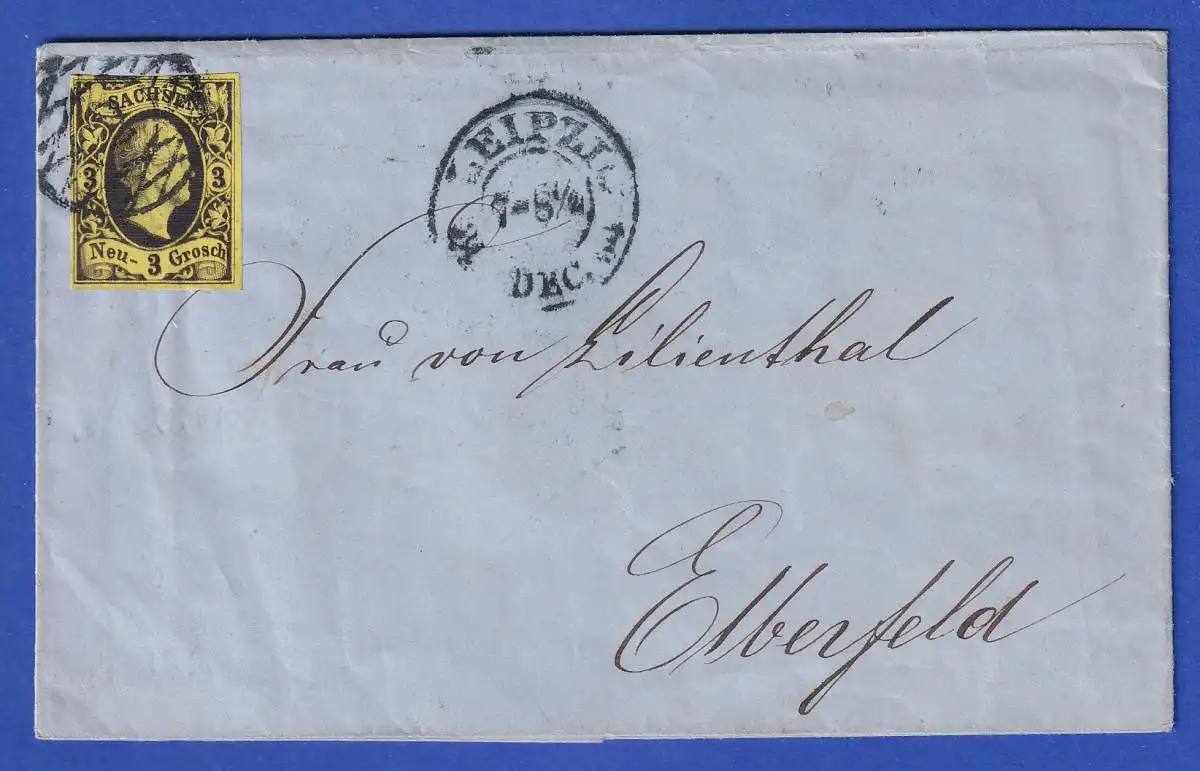 SACHSEN
3 3
Neu- 3 Grosch
LEIPZIG
7-8½
DEC.
Frau von Lilienthal
Elberfeld